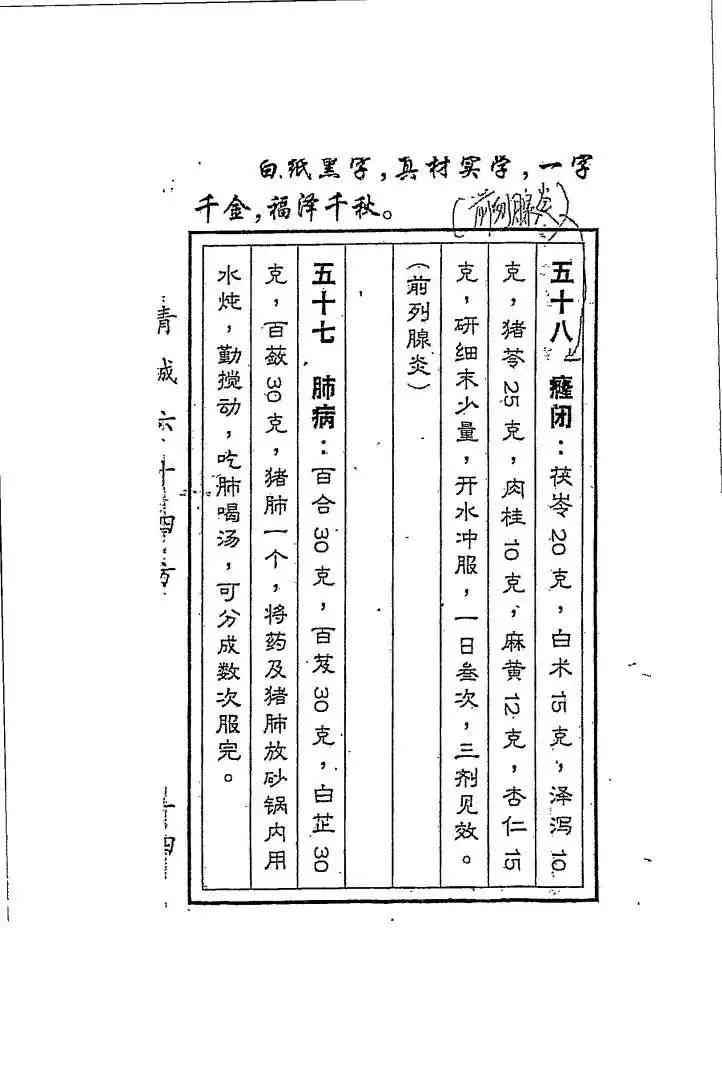 白纸黑字，真材实学，一字
千金，福泽千秋。
（前列腺炎）
五十八 癃闭：茯苓20克，白术15克，泽泻10
克，猪苓25克，肉桂10克，麻黄12克，杏仁15
克，研细末少量，开水冲服，一日叁次，三剂见效。
（前列腺炎）
五十七 肺病：百合30克，百芨30克，白芷30
克，百蔹30克，猪肺一个，将药及猪肺放砂锅内用
水炖，勤搅动，吃肺喝汤，可分成数次服完。
青城六十四方
十四